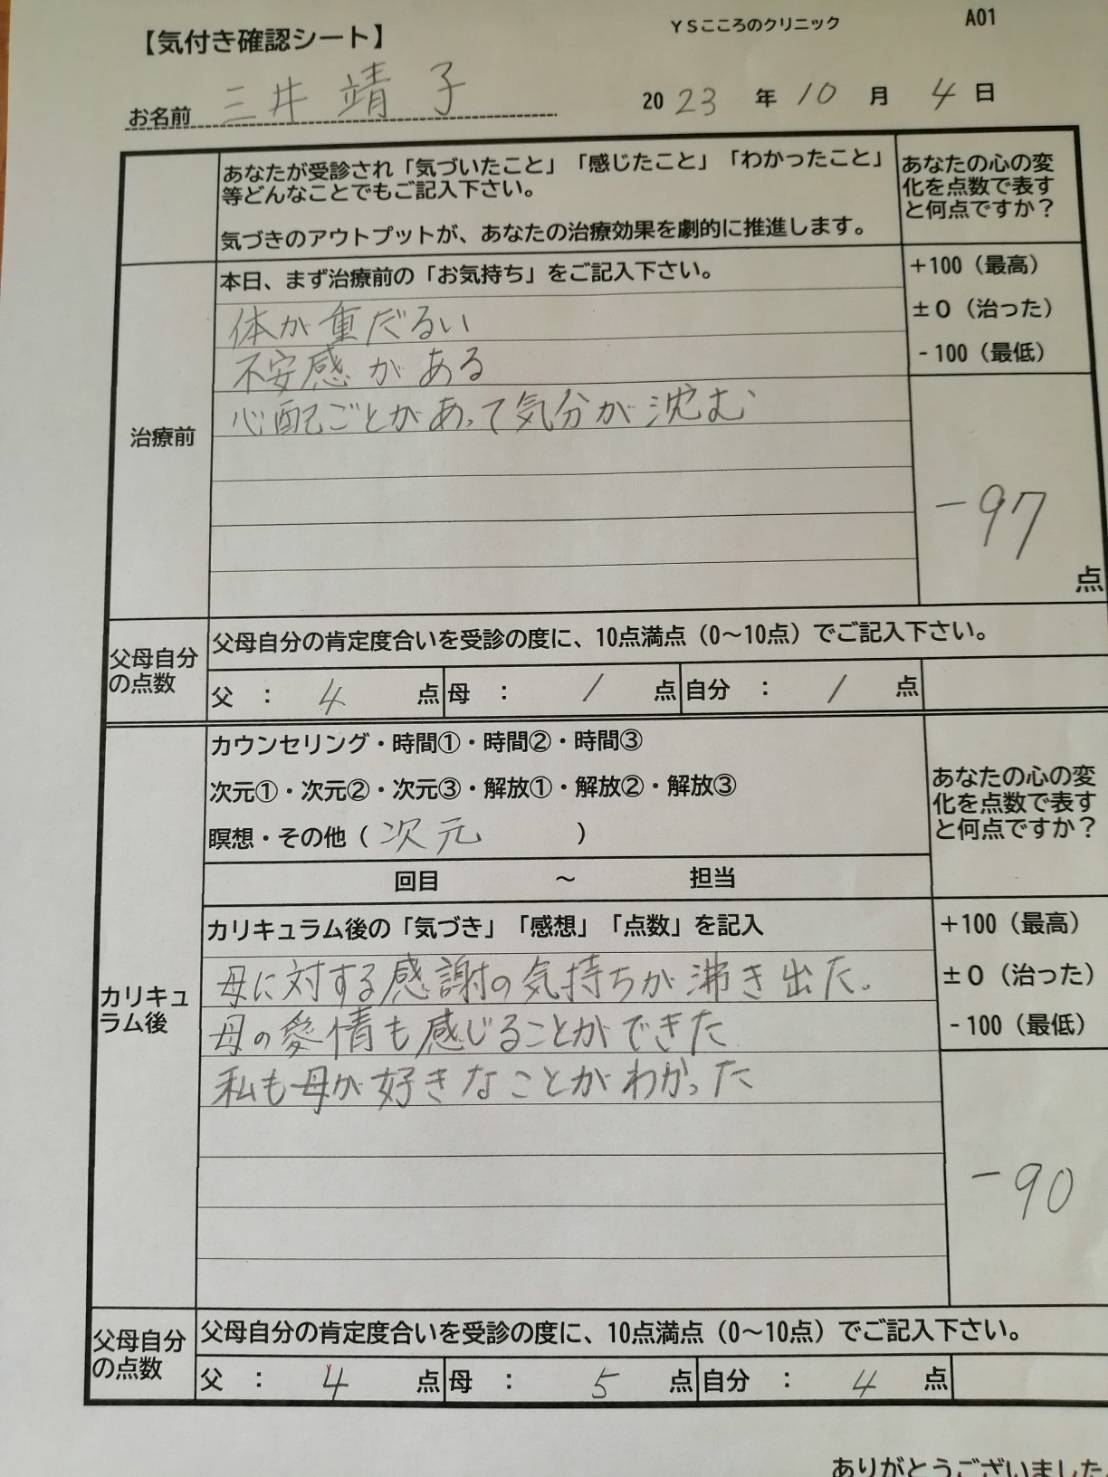 【気付き確認シート】
ＹＳこころのクリニック
A01
お名前 三井 靖子
2023年10月4日
あなたが受診され「気づいたこと」「感じたこと」「わかったこと」
等どんなことでもご記入下さい。
気づきのアウトプットが、あなたの治療効果を劇的に推進します。
あなたの心の変
化を点数で表す
と何点ですか？
治療前
本日、まず治療前の「お気持ち」をご記入下さい。
体が重だるい
不安感がある
心配ごとがあって気分が沈む
+100（最高）
±０（治った）
-100（最低）
-97
点
父母自分
の点数
父母自分の肯定度合いを受診の度に、10点満点（0～10点）でご記入下さい。
父 ： 4 点 母 ： 1 点 自分 ： 1 点
カリキュ
ラム後
カウンセリング・時間①・時間②・時間③
次元①・次元②・次元③・解放①・解放②・解放③
瞑想・その他（ 次元 ）
回目 ～ 担当
あなたの心の変
化を点数で表す
と何点ですか？
カリキュラム後の「気づき」「感想」「点数」を記入
母に対する感謝の気持ちが沸き出た。
母の愛情も感じることができた
私も母が好きなことがわかった
+100（最高）
±０（治った）
-100（最低）
-90
父母自分
の点数
父母自分の肯定度合いを受診の度に、10点満点（0～10点）でご記入下さい。
父 ： 4 点 母 ： 5 点 自分 ： 4 点
ありがとうございました